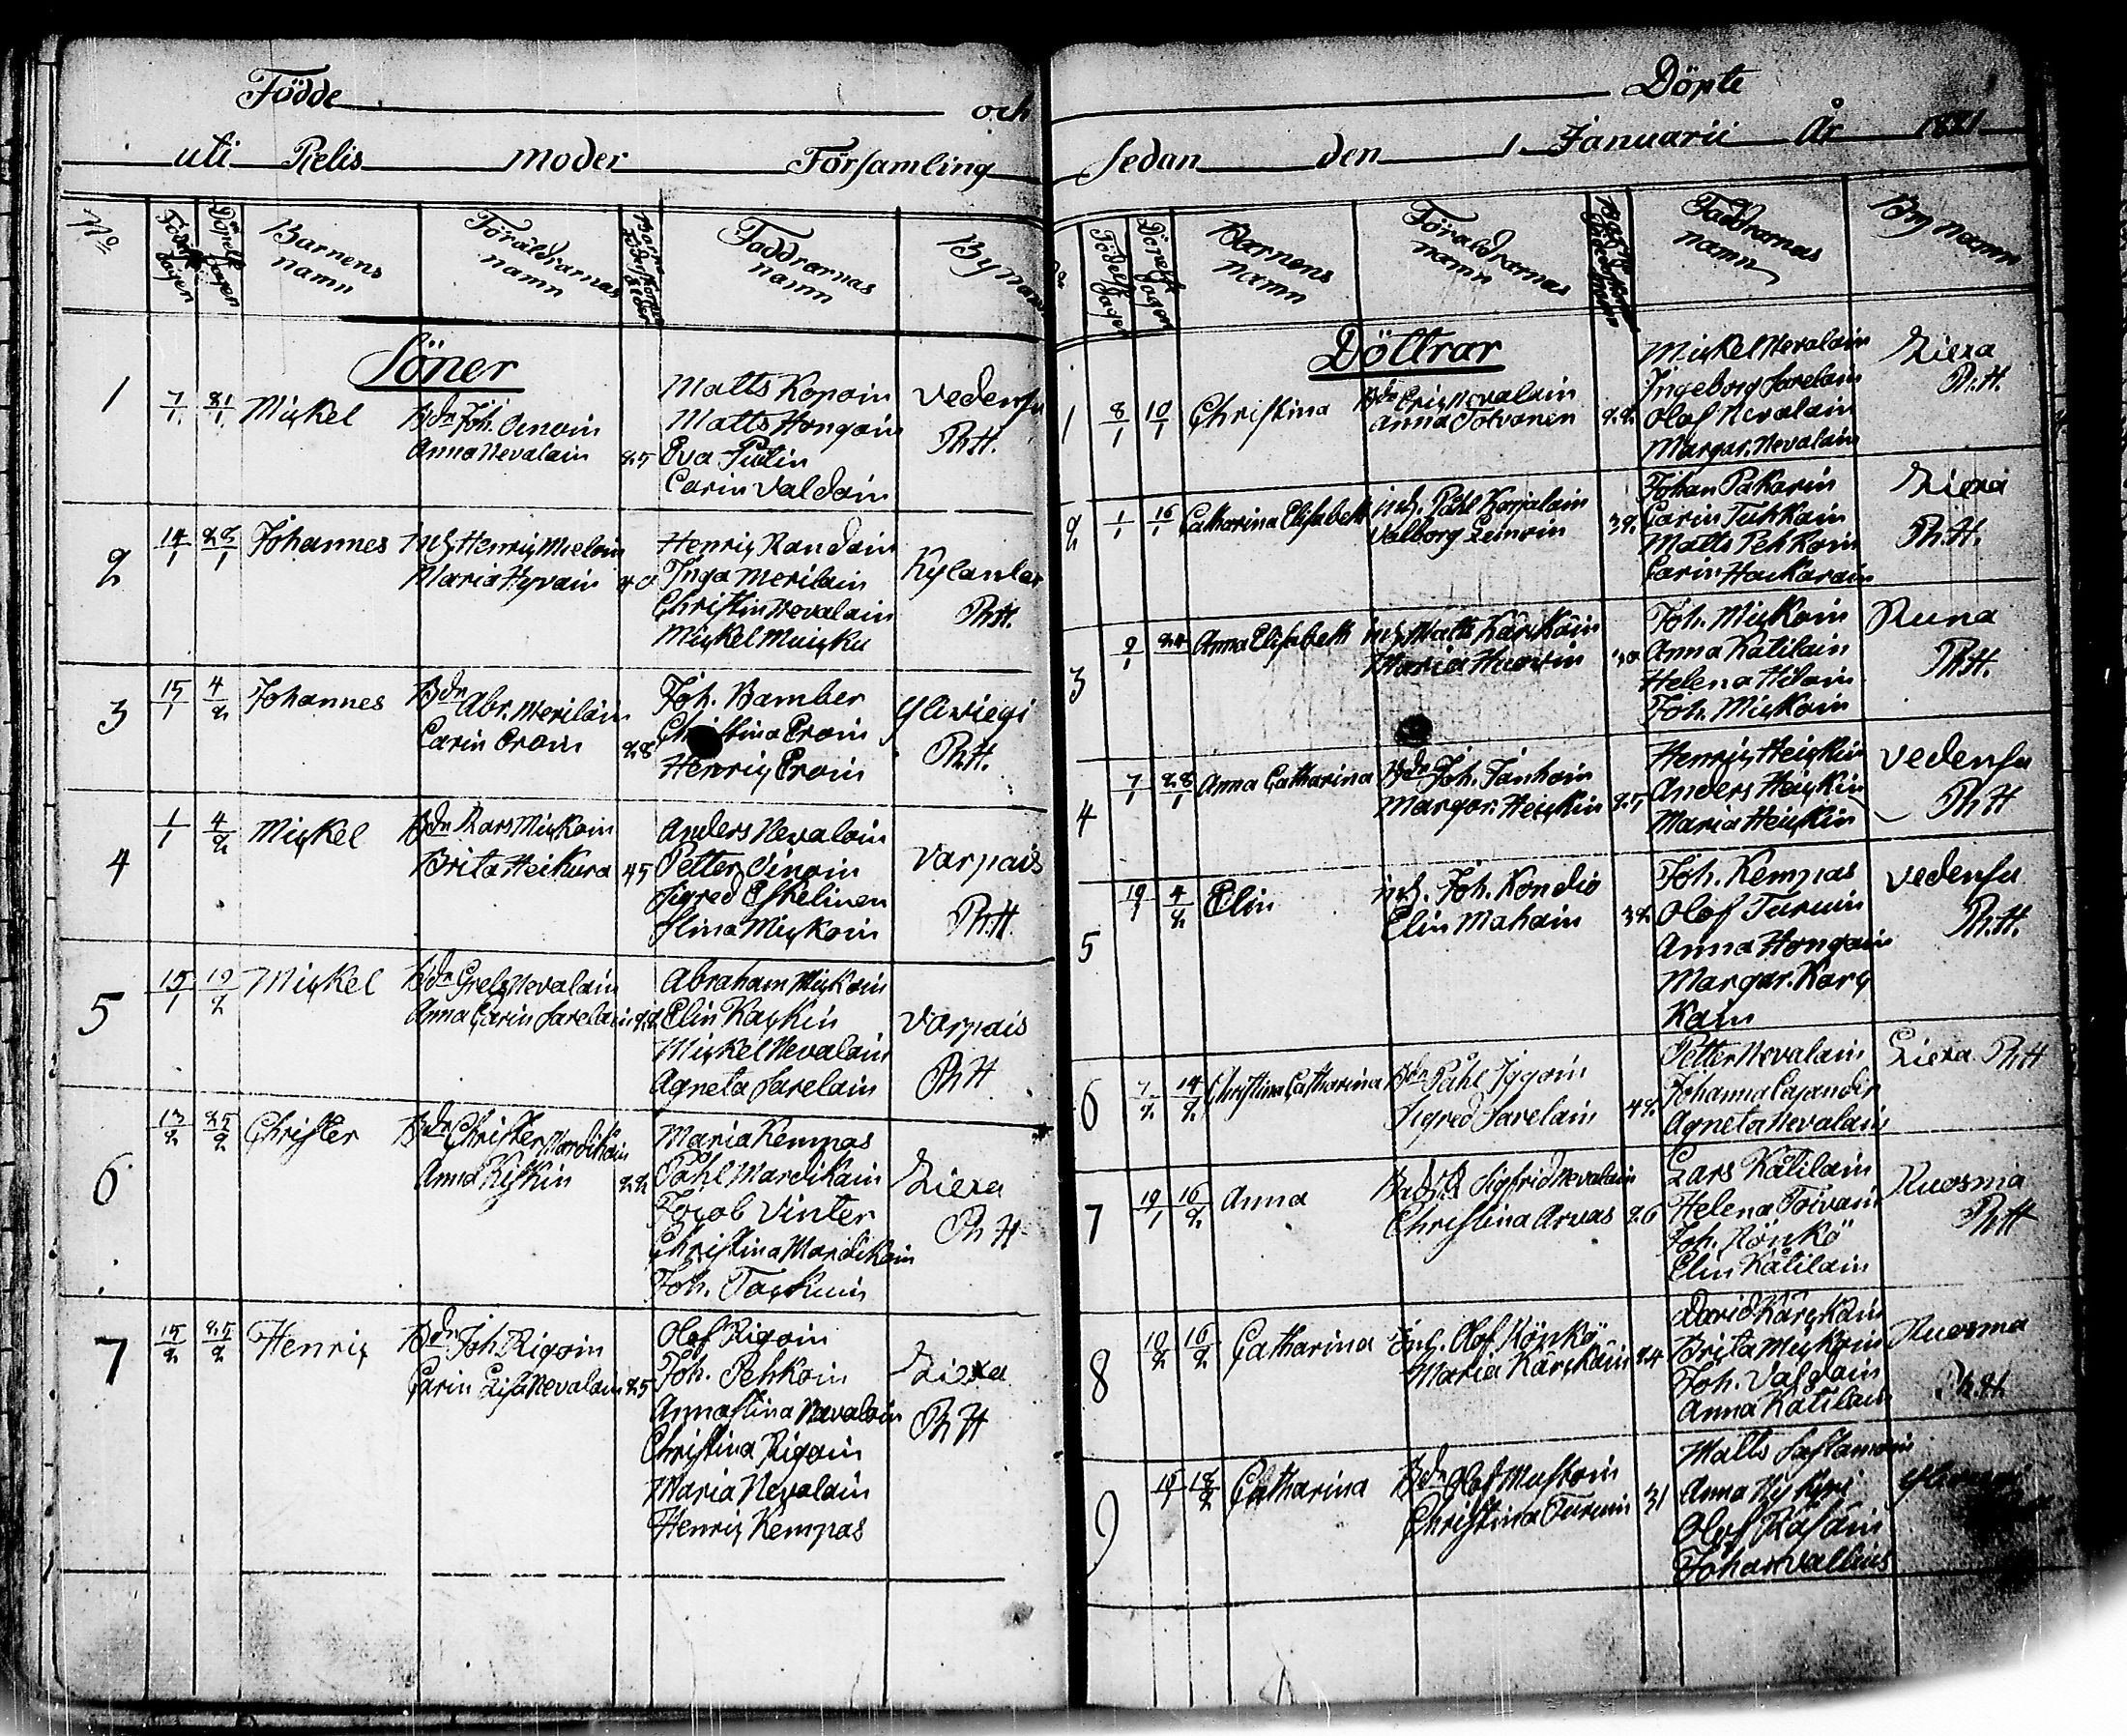 Födde och Döpte
uti Pielis moder Församling sedan den 1. Januarii År 1821
No Födelse dagen Döpelse dagen Barnens namn Föräldrarnas namn Faddrarnas namn By namn
Söner
1 7/1 21/1 Mickel Bdn Joh. Venoin Anna Nevalain 25
Matts Kopoin
Matts Hongain
Eva Putin
Carin Valdain
Vedensu
Ph.H.
2 14/1 28/1 Johannes Inh Henric Mieloin Maria Hyvain 40
Henric Randain
Inga Merilain
Christin Nevalain
Mickel Muicku
Kylanlax
Ph.H.
3 15/1 4/2 Johannes Bdn Abr. Merilain Carin Eroin 28
Joh. Bamber
Christina Eroin
Henric Eroin
Ylawiegi
Ph.H.
4 1/1 4/2 Mickel Bdn Lars Mickoin Brita Heikura 45
Anders Nevalain
Petter Oinoin
Sigred Eskelinen
Stina Mickoin
Varpais
Ph.H.
5 15/1 19/2 Mickel Bdn Grels Nevalain Anna Carin Sarelain 22
Abraham Mickoin
Elin Kackin
Mickel Nevalain
Agneta Sarelain
Varpais
Ph H
6 13/2 25/2 Christer Bdn Christer Mardikain Anna Kiskin 22
Maria Kempas
Påhl Mardikain
Jocob Vinter
Christina Mardikain
Joh. Tackuin
Liexa
Ph H
7 15/2 25/2 Henric Bdn Joh Rigoin Carin Lisa Nevalain 25
Olof Rigoin
Joh. Pehkoin
Anna Stina Nevalain
Christina Rigoin
Maria Nevalain
Henric Kempas
Liexa
Ph H
Födelse dagen Döpelse dagen Barnens namn Föräldrarnas namn Faddrarnas namn By namn
Döttrar
1 8/1 10/1 Christina Bdn Eric Nevalain Anna Toivonen 22
Mickel Nevalain
Ingeborg Sarelain
Olof Nevalain
Margar. Nevalain
Liexa
Ph.H.
2 1/1 16/1 Catharina Elisabeth inh. Påhl Korjalain Valborg Leinoin 32
Johan Pakarin
Carin Tuhkain
Matts Pehkoin
Carin Hackarain
Liexa
Ph.H.
3 2/1 24 Anna Elisabeth inh. Matts Kärkäin Maria
Joh. Mickoin
Anna Kätilain
Helena Hiloin
Joh. Mickoin
Runa
Ph.H.
4 7/1 28/1 Anna Catharina Bdn Joh. Tanhoin Margar. Heickin 25
Henric Heickin
Anders Heickin
Maria Heickin
Vedensu
Ph H
5 19/1 4/2 Elin inh. Joh. Kondio Elin Mahoin 32
Joh. Kempas
Olof Turuin
Anna Hongain
Margar. Karc
Kain
Vedensu
Ph.H.
6 7/2 14/2 Christina Catharina Bdn Påhl Iggoin Sigred Sarelain 42
Petter Nevalain
Johanna Cajander
Agneta Nevalain
Liexa Ph H
7 19/1 16/2 Anna Sigfrid Nevalain Christina Arvas 26
Lars Kätilain
Helena Toivain
Joh. Rönkö
Elin Kätilain
Kuosma
Ph H
8 10/2 16/2 Catharina Inh. Olof Rönkö Maria Kärckäin 24
David Kärckäin
Brita Mickoin
Joh. Valdain
Anna Kätilain
Ruosma
Ph.H.
9 15/1 18/2 Catharina Bdn Olof Mustoin Christina Turuin 31
Matts Sastamoin
Anna
Olof Räsäin
Johan Vallius